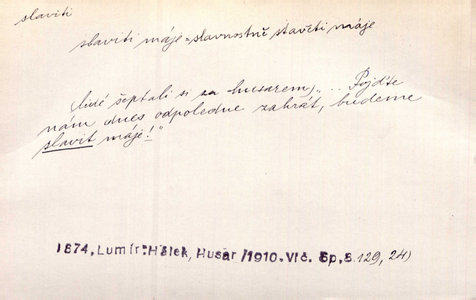 slaviti
slaviti máje = slavnostně stavěti máje
lidé šeptali si za husarem, „... Pojďte
nám dnes odpoledne zahrát, budeme
slavit máje!"
1874, Lumír: Hálek, Husar /1910. Vlč. Sp. S. 129, 24)